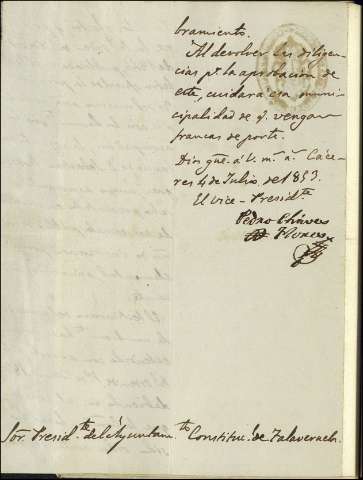 bramiento.
Al devolver las diligen-
cias p.ª la aprobacion de
este, cuidará esa muni-
cipalidad de q.e vengan
francas de porte.
Dios gue. á V. m.s a.s Cáce-
res 4 de Julio de 1853.
El vice-Presid.te
Pedro Cháves
Flores
Sor. Presid.te del Ayuntam.to Constitu.l de Talaveruela.